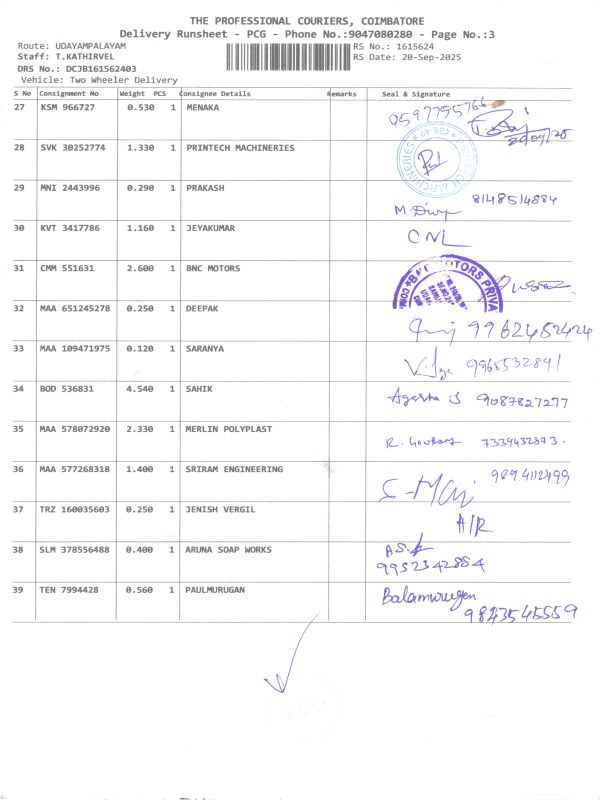 THE PROFESSIONAL COURIERS, COIMBATORE
Delivery Runsheet - PCG - Phone No.:9047080280 - Page No.:3
Route: UDAYAMPALAYAM RS No.: 1615624
Staff: T.KATHIRVEL RS Date: 20-Sep-2025
DRS No.: DCJB161562403
Vehicle: Two Wheeler Delivery
S No Consignment No Weight PCS Consignee Details Remarks Seal & Signature
27 KSM 966727 0.530 1 MENAKA
28 SVK 30252774 1.330 1 PRINTECH MACHINERIES
PRINTECH MACHINERIES
29 MNI 2443996 0.290 1 PRAKASH 8148514884
30 KVT 3417786 1.160 1 JEYAKUMAR CNL
31 CMM 551631 2.600 1 BNC MOTORS
32 MAA 651245278 0.250 1 DEEPAK 9962452424
33 MAA 109471975 0.120 1 SARANYA Vidya 9965532891
34 BOD 536831 4.540 1 SAHIK 9087827277
35 MAA 578072920 2.330 1 MERLIN POLYPLAST
36 MAA 577268318 1.400 1 SRIRAM ENGINEERING 9694112499
37 TRZ 160035603 0.250 1 JENISH VERGIL A/R
38 SLM 378556488 0.400 1 ARUNA SOAP WORKS
9952342884
39 TEN 7994428 0.560 1 PAULMURUGAN Balamurugan
9843545559